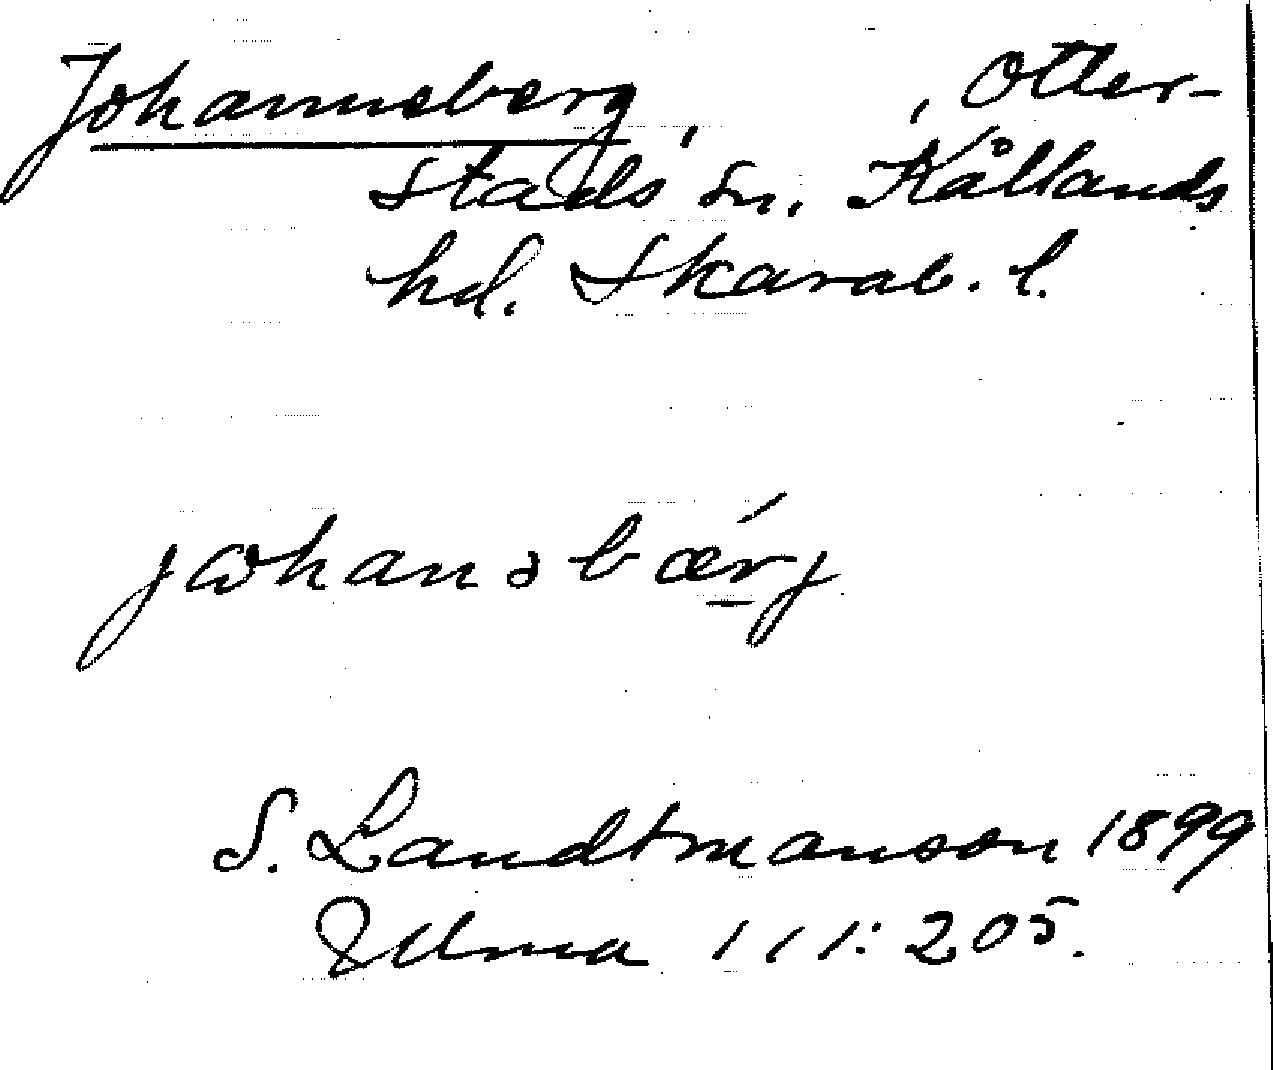 Johanneberg, , Otter-
stads sn. Kållands
hd. Skarab. l.
jωhanəbærj
S. Landtmanson 1899
Ulma 111:205.